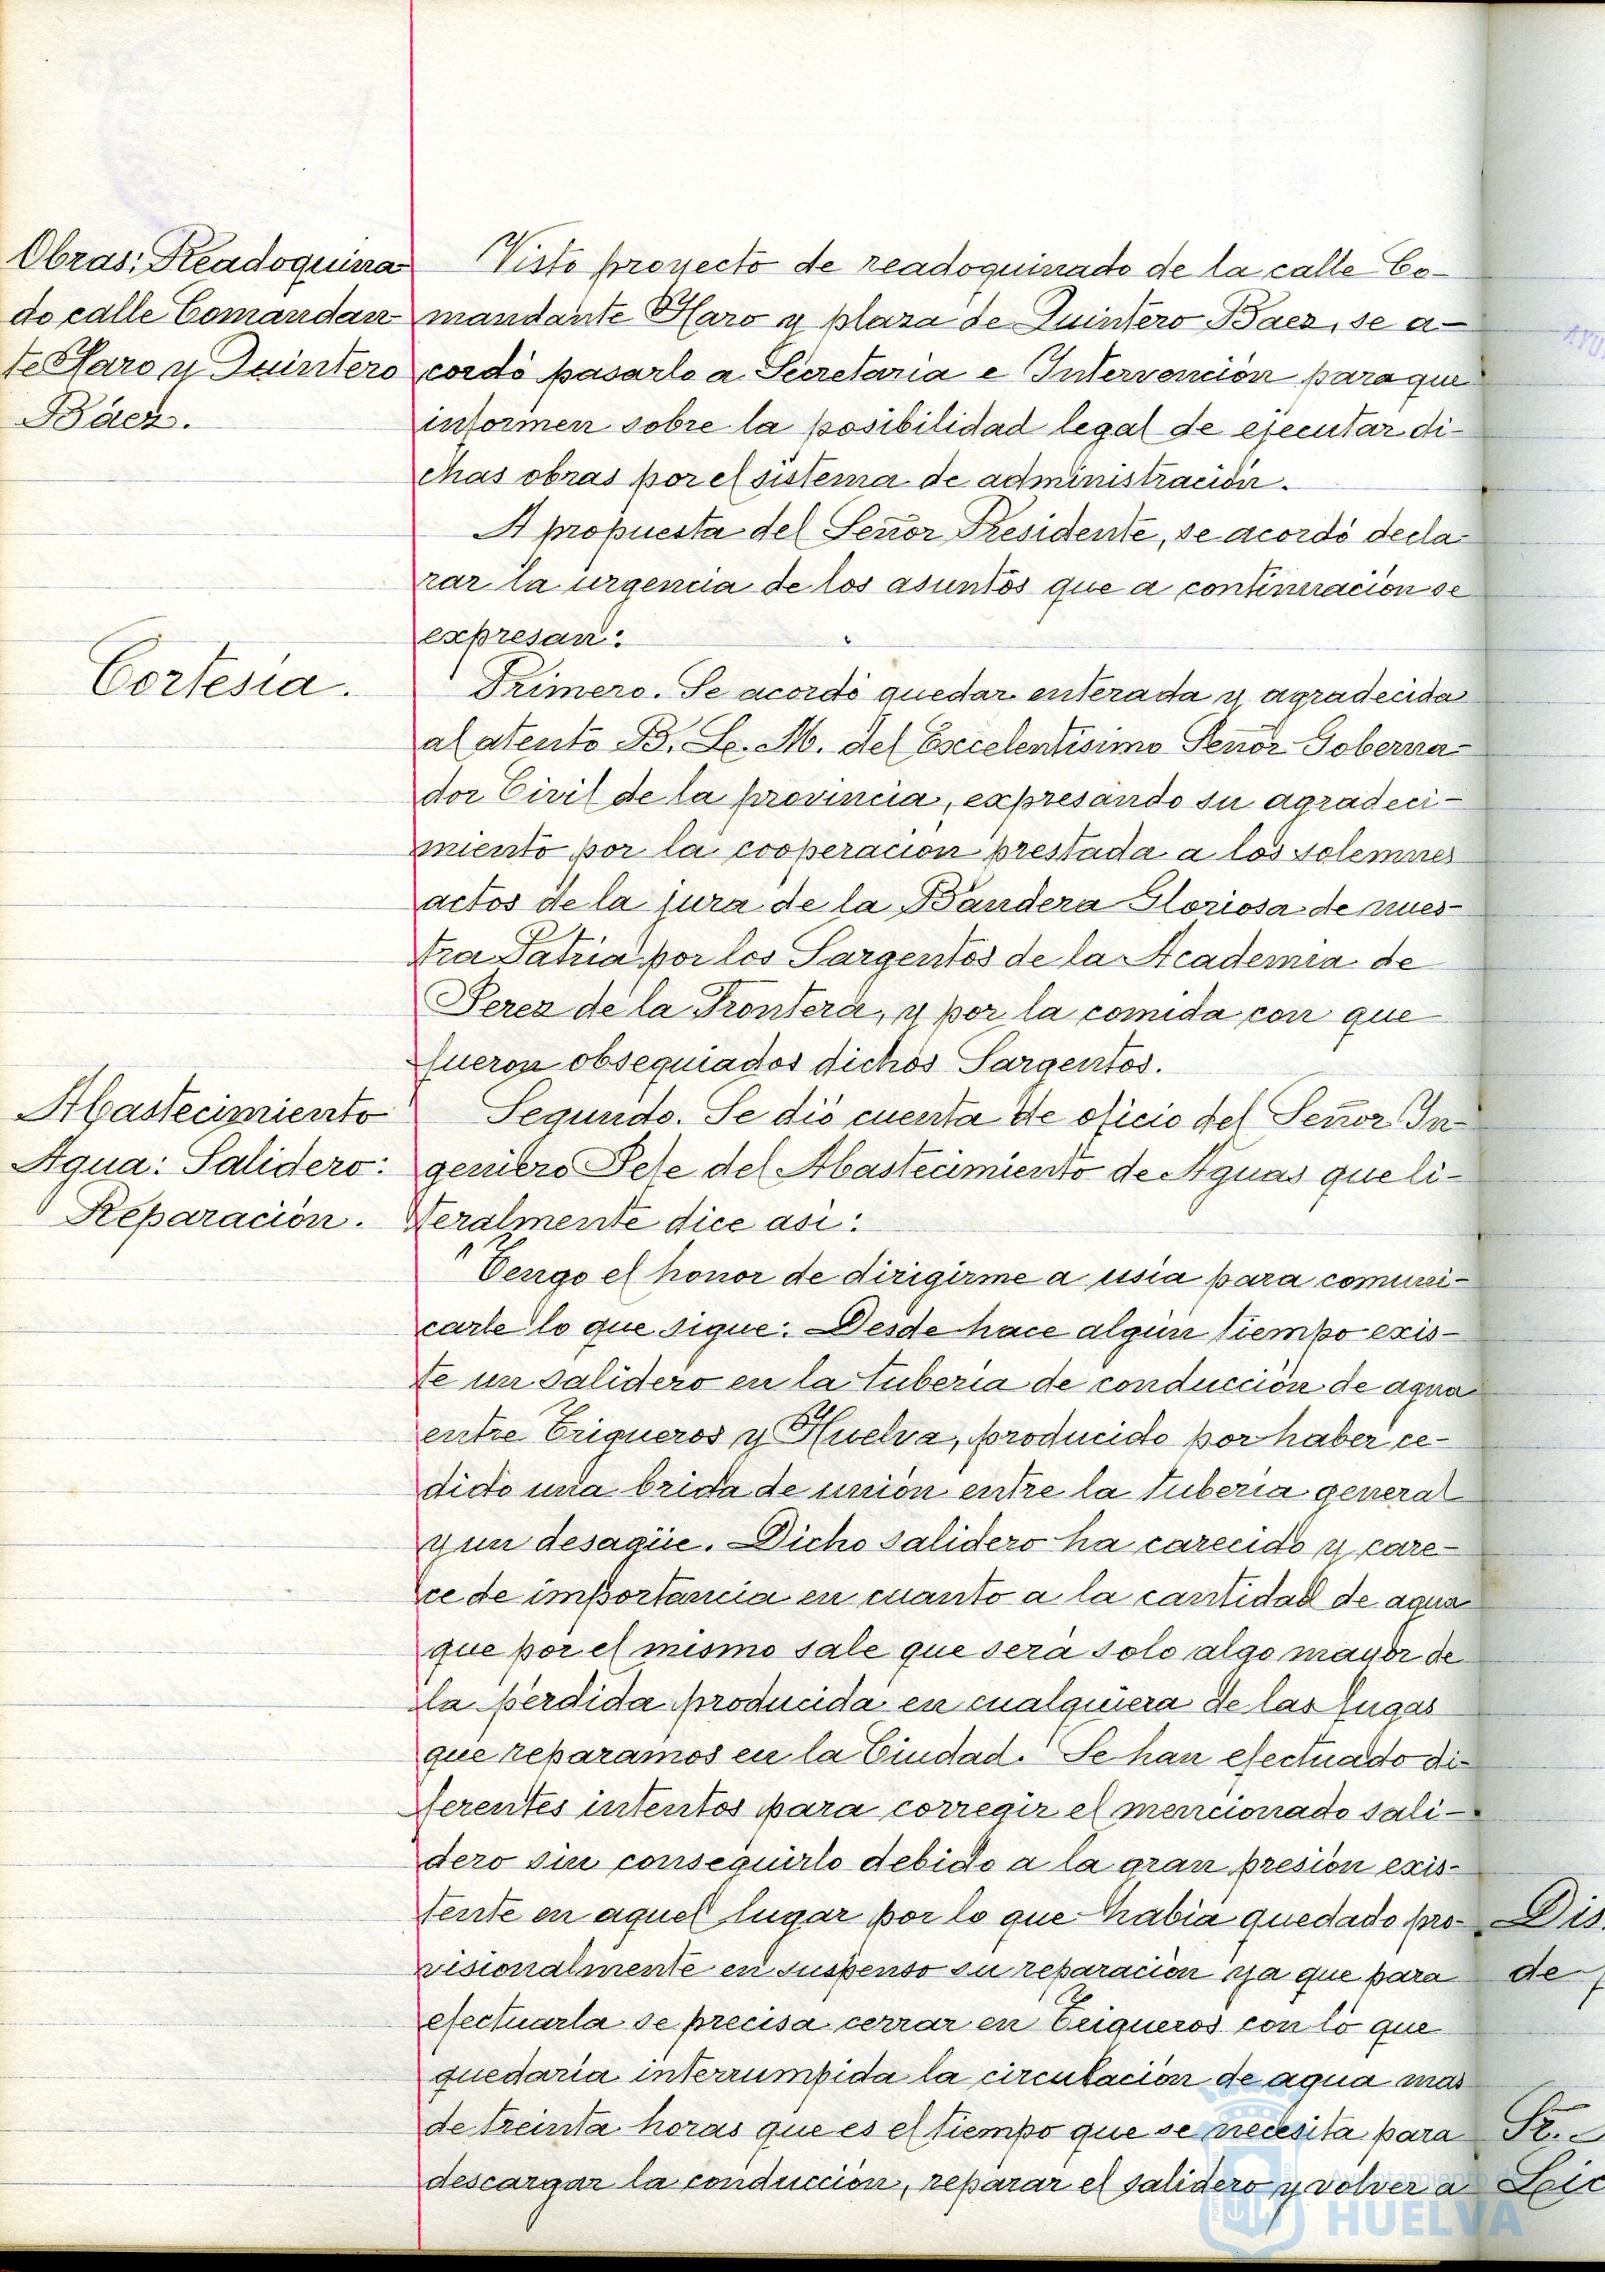 Obras: Readoquina
do calle Comandan
te Haro y Quintero
Báez.
Visto proyecto de readoquinado de la calle Co-
mandante Haro y plaza de Quintero Baez, se a-
cordó pasarlo a Secretaria e Intervención para que
informen sobre la posibilidad legal de ejecutar di-
chas obras por el sistema de administración.
A propuesta del Señor Presidente, se acordó decla-
rar la urgencia de los asuntos que a continuación se
expresan:
Cortesía.
Primero. Se acordó quedar enterada y agradecida
al atento B. L. M. del Excelentísimo Señor Goberna-
dor Civil de la provincia, expresando su agradeci-
miento por la cooperación prestada a los solemnes
actos de la jura de la Bandera Gloriosa de nues-
tra Patria por los Sargentos de la Academia de
Jerez de la Frontera, y por la comida con que
fueron obsequiados dichos Sargentos.
Abastecimiento
Agua: Salidero:
Reparación.
Segundo. Se dió cuenta de oficio del Señor In-
geniero Jefe del Abastecimiento de Aguas que li-
teralmente dice asi:
"Tengo el honor de dirigirme a usia para comuni-
carle lo que sigue: Desde hace algún tiempo exis-
te un salidero en la tubería de conducción de agua
entre Trigueros y Huelva, producido por haber ce-
dido una brida de unión entre la tubería general
y un desagüe. Dicho salidero ha carecido y care-
ce de importancia en cuanto a la cantidad de agua
que por el mismo sale que será solo algo mayor de
la pérdida producida en cualquiera de las fugas
que reparamos en la Ciudad. Se han efectuado di-
ferentes intentos para corregir el mencionado sali-
dero sin conseguirlo debido a la gran presión exis-
tente en aquel lugar por lo que había quedado pro-
visionalmente en suspenso su reparación ya que para
efectuarla se precisa cerrar en Trigueros con lo que
quedaría interrumpida la circulación de agua mas
de treinta horas que es el tiempo que se necesita para
descargar la conducción, reparar el salidero y volver a
Dis.
de
Sr.
Ayuntamiento de
HUELVA